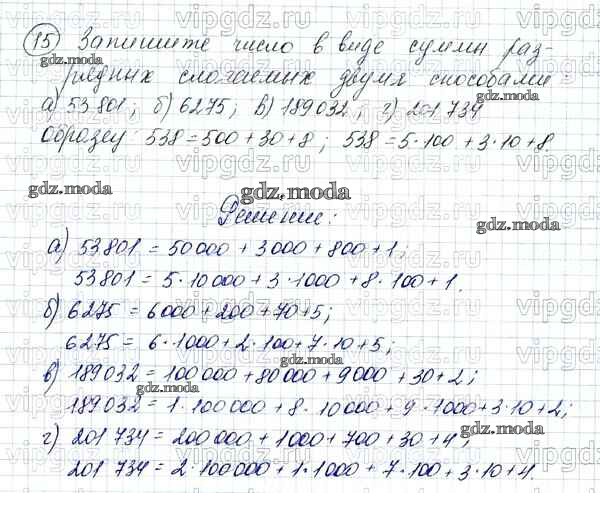 15 Запишите число в виде суммы раз-
рядных слагаемых двумя способами:
а) 53801; б) 6275; в) 189032; г) 201734
Образец: 538 = 500 + 30 + 8; 538 = 5·100 + 3·10 + 8.
gdz.moda
Решение:
а) 53801 = 50000 + 3000 + 800 + 1;
53801 = 5·10000 + 3·1000 + 8·100 + 1.
б) 6275 = 6000 + 200 + 70 + 5;
6275 = 6·1000 + 2·100 + 7·10 + 5;
в) 189032 = 100000 + 80000 + 9000 + 30 + 2;
189032 = 1·100000 + 8·10000 + 9·1000 + 3·10 + 2;
г) 201734 = 200000 + 1000 + 700 + 30 + 4;
201734 = 2·100000 + 1·1000 + 7·100 + 3·10 + 4.